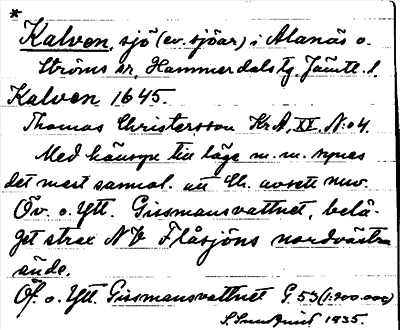 * Kalven, sjö (ev. sjöar) i Alanäs o.
Ströms sr, Hammerdals tg. Jämtl. l
Kalven 1645.
Thomas Christersson KrA, XV. N:o 4.
Med hänsyn till läge m. m. synes
det mest sannol. att Ch. avsett nuv.
Öv. o. Ytt. Gissmansvattnet, belä-
get strax NV Flåsjöns nordvästra
ände.
Öf. o. Ytt. Gissmansvattnet G. 53 (1:200.000)
S. Sundquist 1935.